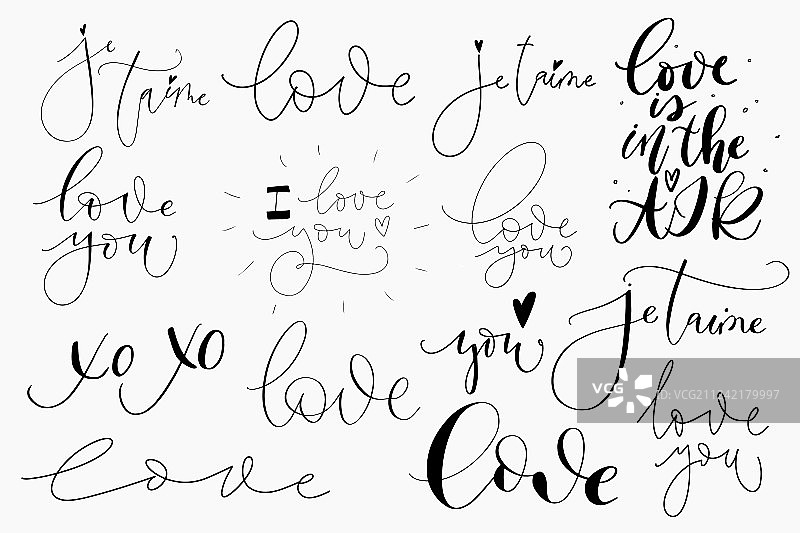 je
t'aime
love
je t'aime
love
is
in the
AIR
love
you
I love
you
love
you
xo xo
love
you
je t'aime
love
love
love
you
VCG
VCG ID: VCG211242179997